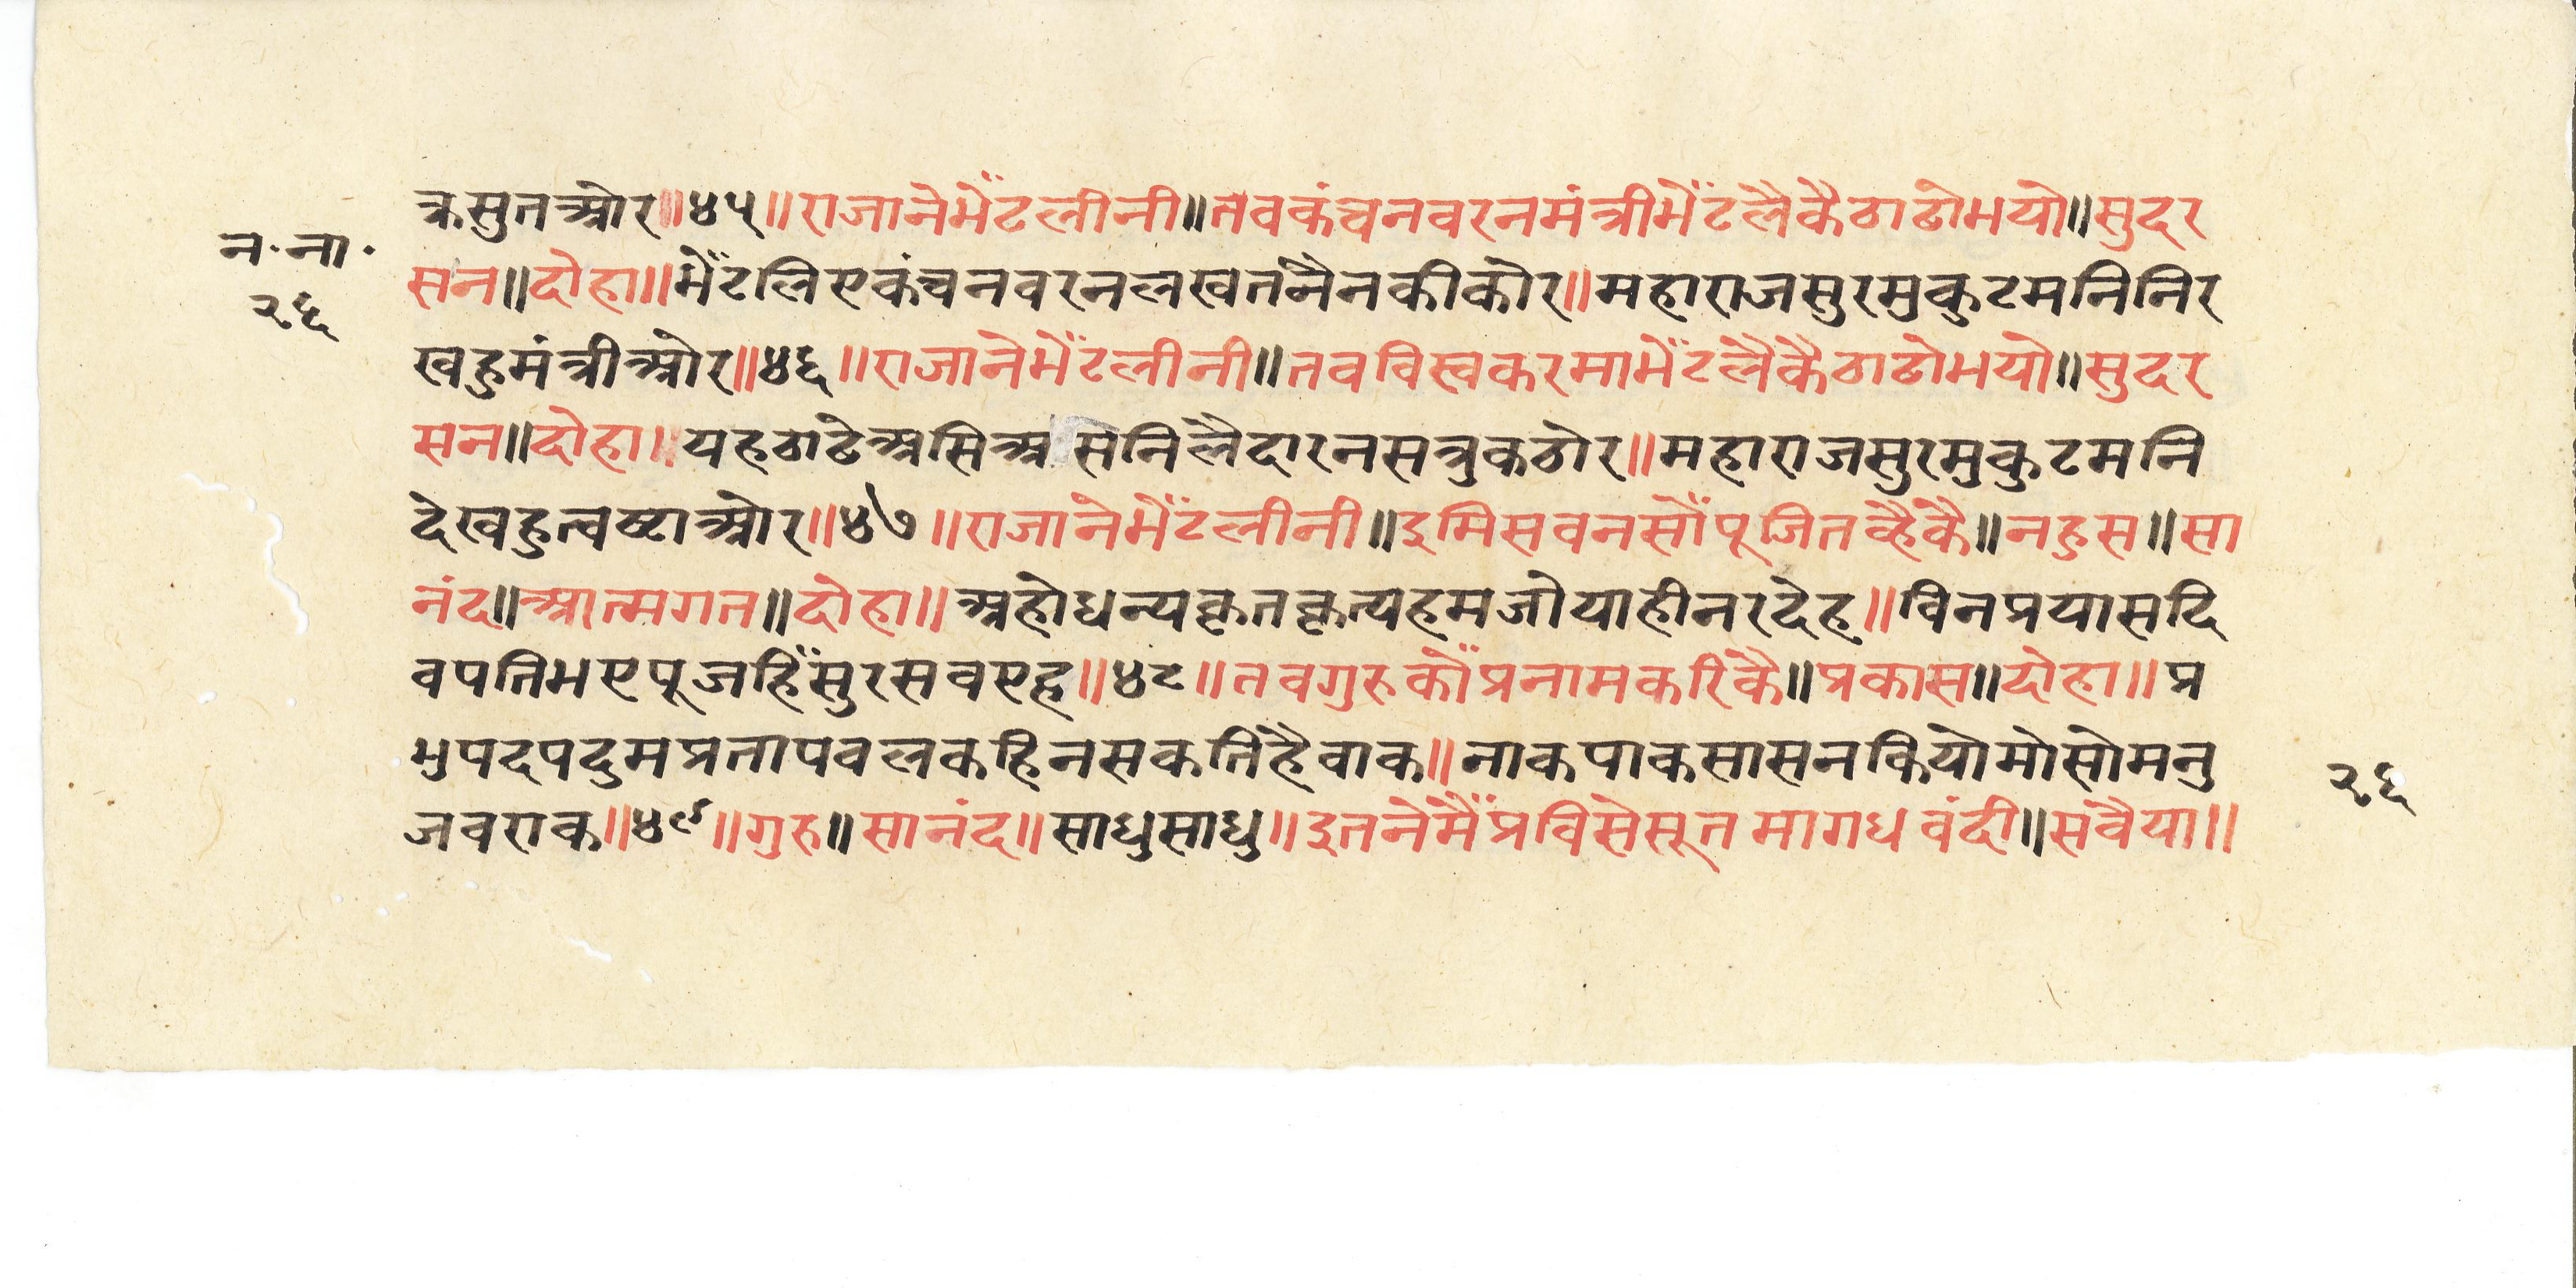 न॰ना॰
२६
क्रसुतओर॥४५॥राजानेभेँटलीनी॥तवकंचनवरनमंत्रीभेँटलैकैठाढोभयो॥सुदर
सन॥दोहा॥भेँटलिएकंचनवरनलखतनैनकीकोर॥महाराजसुरमुकुटमनिनिर
खहुमंत्रीओर॥४६॥राजानेभेँटलीनी॥तवविस्वकरमाभेँटलैकैठाढोभयो॥सुदर
सन॥दोहा॥यहठाढेअसिअसनिलैदारनसत्रुकठोर॥महाराजसुरमुकुटमनि
देखहुत्वष्टाओर॥४७॥राजानेभेँटलीनी॥इमिसवनसौँपूजितव्हैकै॥नहुस॥सा
नंद॥आत्मगत॥दोहा॥अहोधन्यकृतकृत्यहमजोयाहीनरदेह॥विनप्रयासदि
वपतिभएपूजहिँसुरसवएह॥४८॥तवगुरुकौँप्रनामकरिकै॥प्रकास॥दोहा॥प्र
भुपदपदुमप्रतापवलकहिनसकतिहैवाक॥नाकपाकसासनकियोमोसोमनु
जवराक॥४९॥गुरु॥सानंद॥साधुसाधु॥इतनेमैँप्रविसेसूतमागधवंदी॥सवैया॥
२६